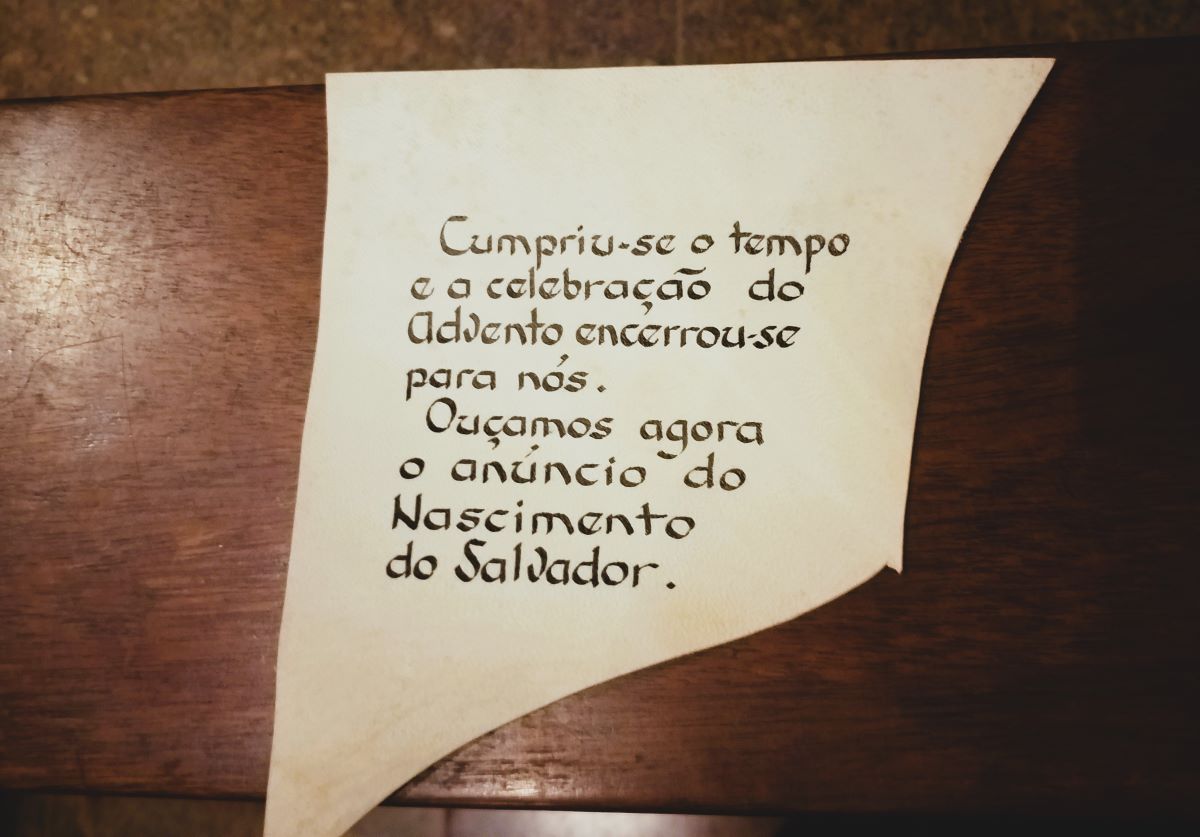 Cumpriu-se o tempo
e a celebração do
Advento encerrou-se
para nós.
Ouçamos agora
o anúncio do
Nascimento
do Salvador.